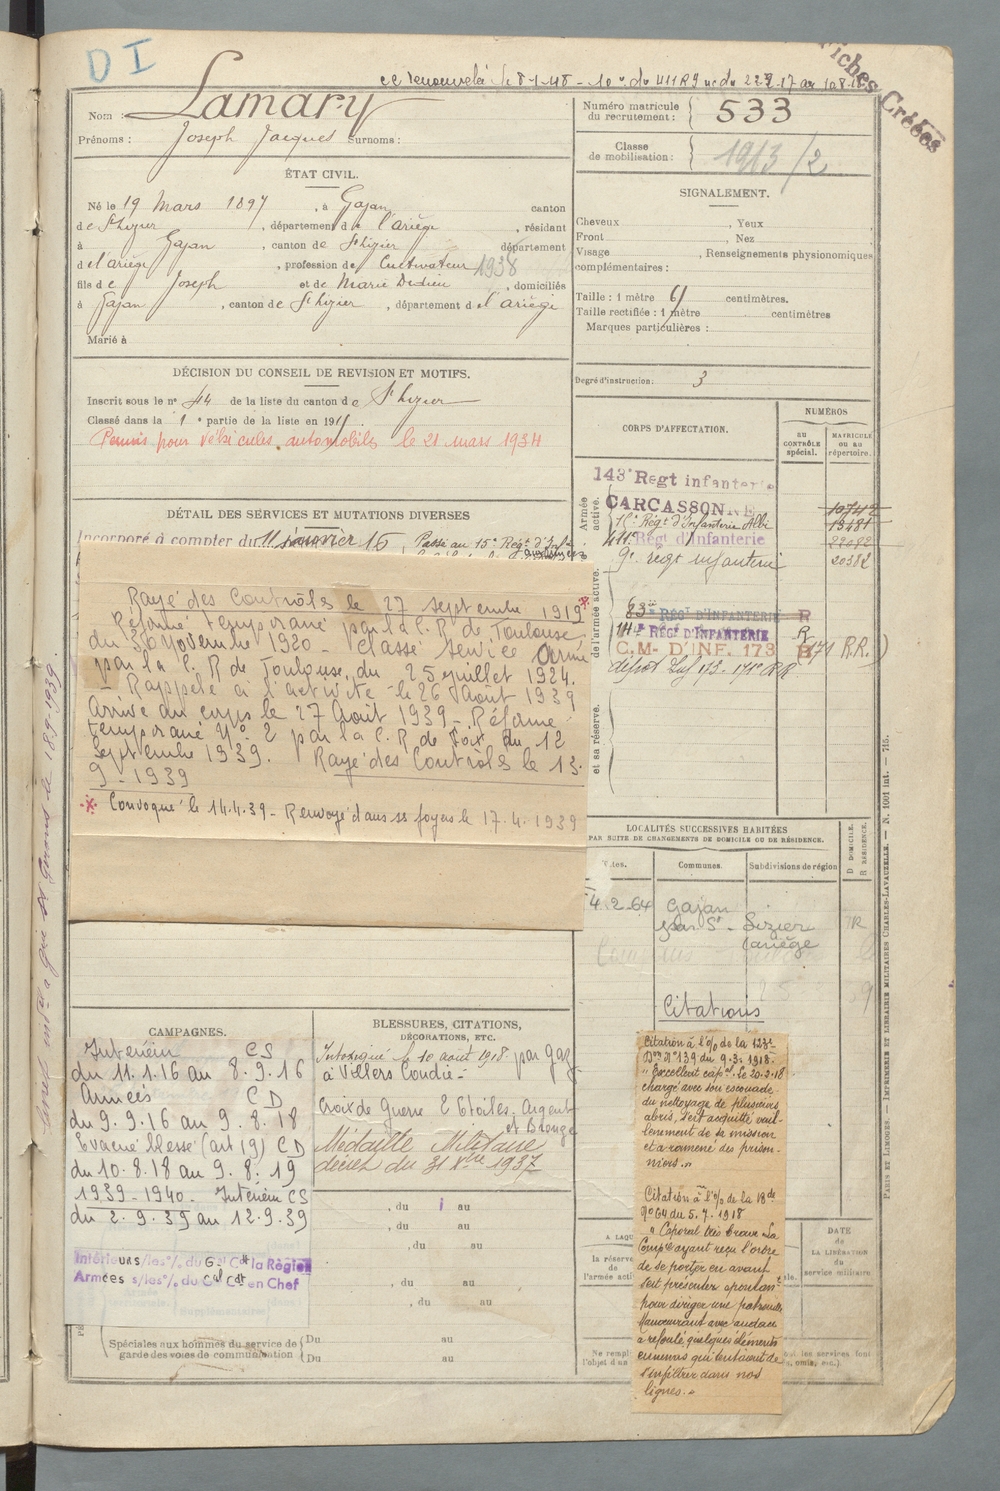 DI
Fiches Créées
Nom : Lamary
Prénoms : Joseph Jacques Surnoms :
Numéro matricule
du recrutement : 533
Classe
de mobilisation : 1913/2
ÉTAT CIVIL.
Né le 19 Mars 1897, à Gajan canton
de St Lizier, département de l'ariège, résidant
à Gajan, canton de St Lizier département
d el'ariège, profession de Cultivateur 1938
fils de Joseph et de Marie Dedieu, domiciliés
à Gajan, canton de St Lizier, département d el'ariège
Marié à
SIGNALEMENT.
Cheveux , Yeux
Front , Nez
Visage , Renseignements physionomiques
complémentaires :
Taille : 1 mètre 61 centimètres.
Taille rectifiée : 1 mètre centimètres
Marques particulières :
Degré d'instruction : 3
DÉCISION DU CONSEIL DE REVISION ET MOTIFS.
Inscrit sous le n° 44 de la liste du canton de St Lizier
Classé dans la 1e partie de la liste en 191
Permis pour véhicules automobiles le 21 mars 1934
DÉTAIL DES SERVICES ET MUTATIONS DIVERSES
Incorporé à compter du 11 janvier 16 Passé au 15e Régt d'Inf
Rayé des Contrôles le 27 septembre 1919
Réformé temporaire par la C. R de Toulouse
du 30 Novembre 1920 - classé service armé
par la C. R de Toulouse, du 25 juillet 1924.
- Rappelé à l'activité le 26 Août 1939
Arrivé au corps le 27 Août 1939 - Réformé
temporaire N° 2 par la C. R de Foix du 12
Septembre 1939. Rayé des Contrôles le 13.
9 - 1939
* Convoqué le 14.4.39 - Renvoyé dans ss foyers le 17.4.1939
CORPS D'AFFECTATION.
NUMÉROS
AU
CONTRÔLE
spécial.
MATRICULE
OU AU
répertoire.
Armée
active.
143e Regt infanterie
CARCASSONNE
15e Régt d'Infanterie Albi
411e Régt d'Infanterie
9e regt infanterie
10742
13481
22092
20382
de l'armée active.
83e RÉGt D'INFANTERIE R
14e RÉGt D'INFANTERIE R
C.M. D'INF. 173 R (171 R.R.)
dépot Inf 173 - 171e RR
et sa réserve.
LOCALITÉS SUCCESSIVES HABITÉES
PAR SUITE DE CHANGEMENTS DE DOMICILE OU DE RÉSIDENCE.
D DOMICILE.
R RÉSIDENCE.
Communes.
Subdivisions de région
4.2.64 Gajan
par St - Lizier
(ariège R
CAMPAGNES.
Intérieur CS
du 11.1.16 au 8.9.16
Armées CD
du 9.9.16 au 9.8.18
Evacué blessé (art 19) CD
du 10.8.18 au 9.8.19
1939-1940 - Intérieur CS
du 2.9.39 au 12.9.39
Intérieurs s/les o/. du Gal Cdt la Région
Armées s/les o/. du Gal Cdt en Chef
BLESSURES, CITATIONS,
DÉCORATIONS, ETC.
Intoxiqué le 10 août 1918 par gaz
à Villers
Croix de Guerre 2 Etoiles, Argent
et Bronze
Médaille Militaire
décret du 31 Xbre 1937
, du au
, du au
, du au
, du au
, du au
Spéciales aux hommes du service de
garde des voies de communication
Du au
Du au
Citations
Citation à l'o/o de la 123e
Don n° 139 du 9.3.1918.
" Excellent cap. Le 20.2.18
chargé avec son escouade
du nettoyage de plusieurs
abris, s'est acquitté vail-
lamment de sa mission
et a ramené des prison-
niers."
Citation à l'o/o de la 18e
n° 64 du 5.7.1918
" Caporal très brave. Sa
Compie ayant reçu l'ordre
de se porter en avant
s'est présenté spontant
pour diriger une patrouille
Manoeuvrant avec audace
a refoulé quelques éléments
ennemis qui tentaient de
s'infiltrer dans nos
lignes."
la réserve
de
l'armée acti
DATE
de
LA LIBÉRATION
du
service militaire
PARIS ET LIMOGES. — IMPRIMERIE ET LIBRAIRIE MILITAIRES CHARLES-LAVAUZELLE. — N. 1001 int. — 715.